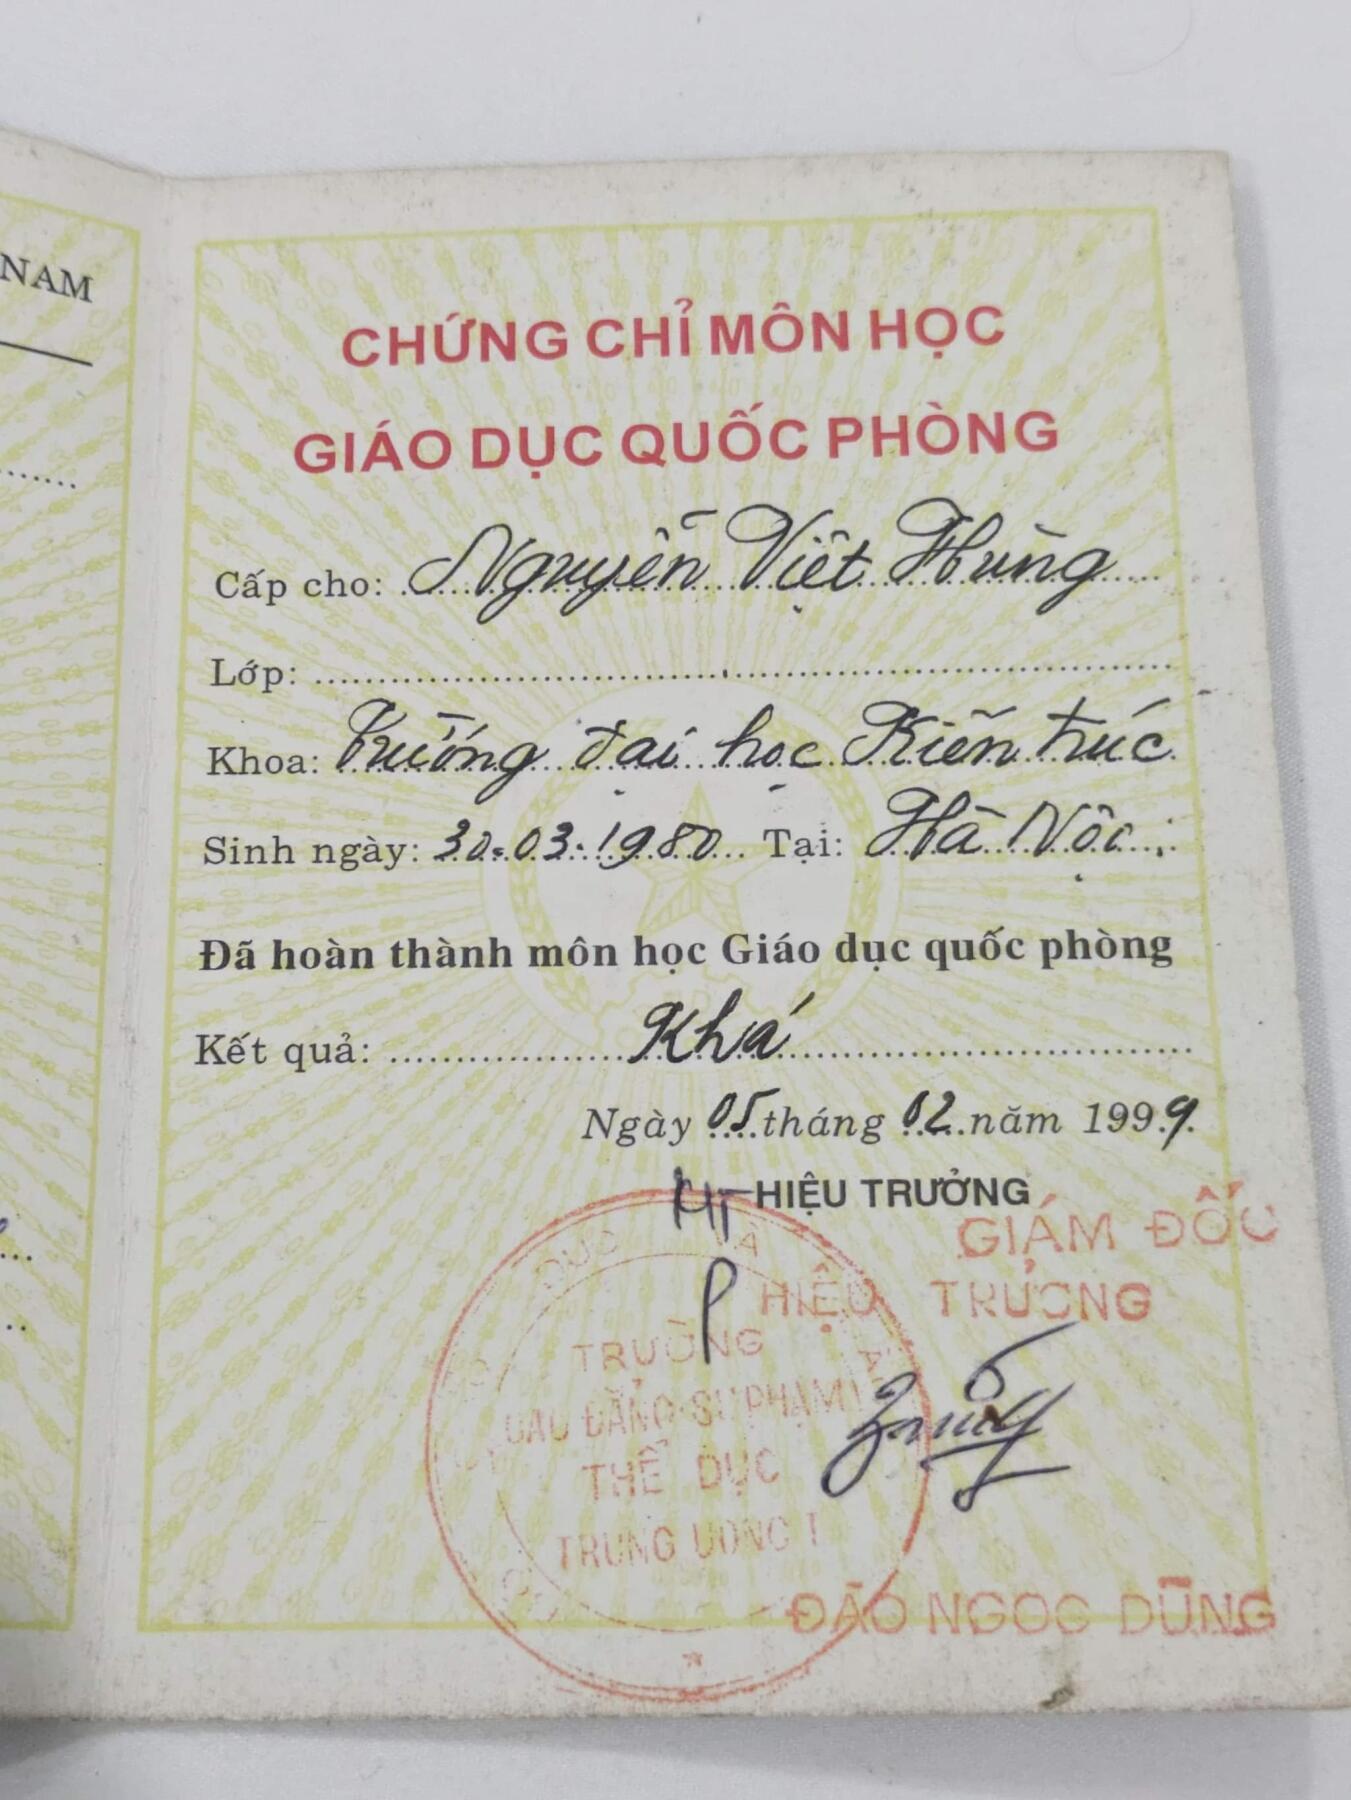 NAM
CHỨNG CHỈ MÔN HỌC
GIÁO DỤC QUỐC PHÒNG
Cấp cho: Nguyễn Việt Hùng
Lớp:
Khoa: Trường đại học Kiến trúc
Sinh ngày: 30.03.1980 Tại: Hà Nội
Đã hoàn thành môn học Giáo dục quốc phòng
Kết quả: Khá
Ngày 05 tháng 02 năm 1999
KT HIỆU TRƯỞNG
P GIÁM ĐỐC
HIỆU TRƯỞNG
TRƯỜNG
CAO ĐẲNG SƯ PHẠM
THỂ DỤC
TRUNG ƯƠNG I
ĐÀO NGỌC DŨNG